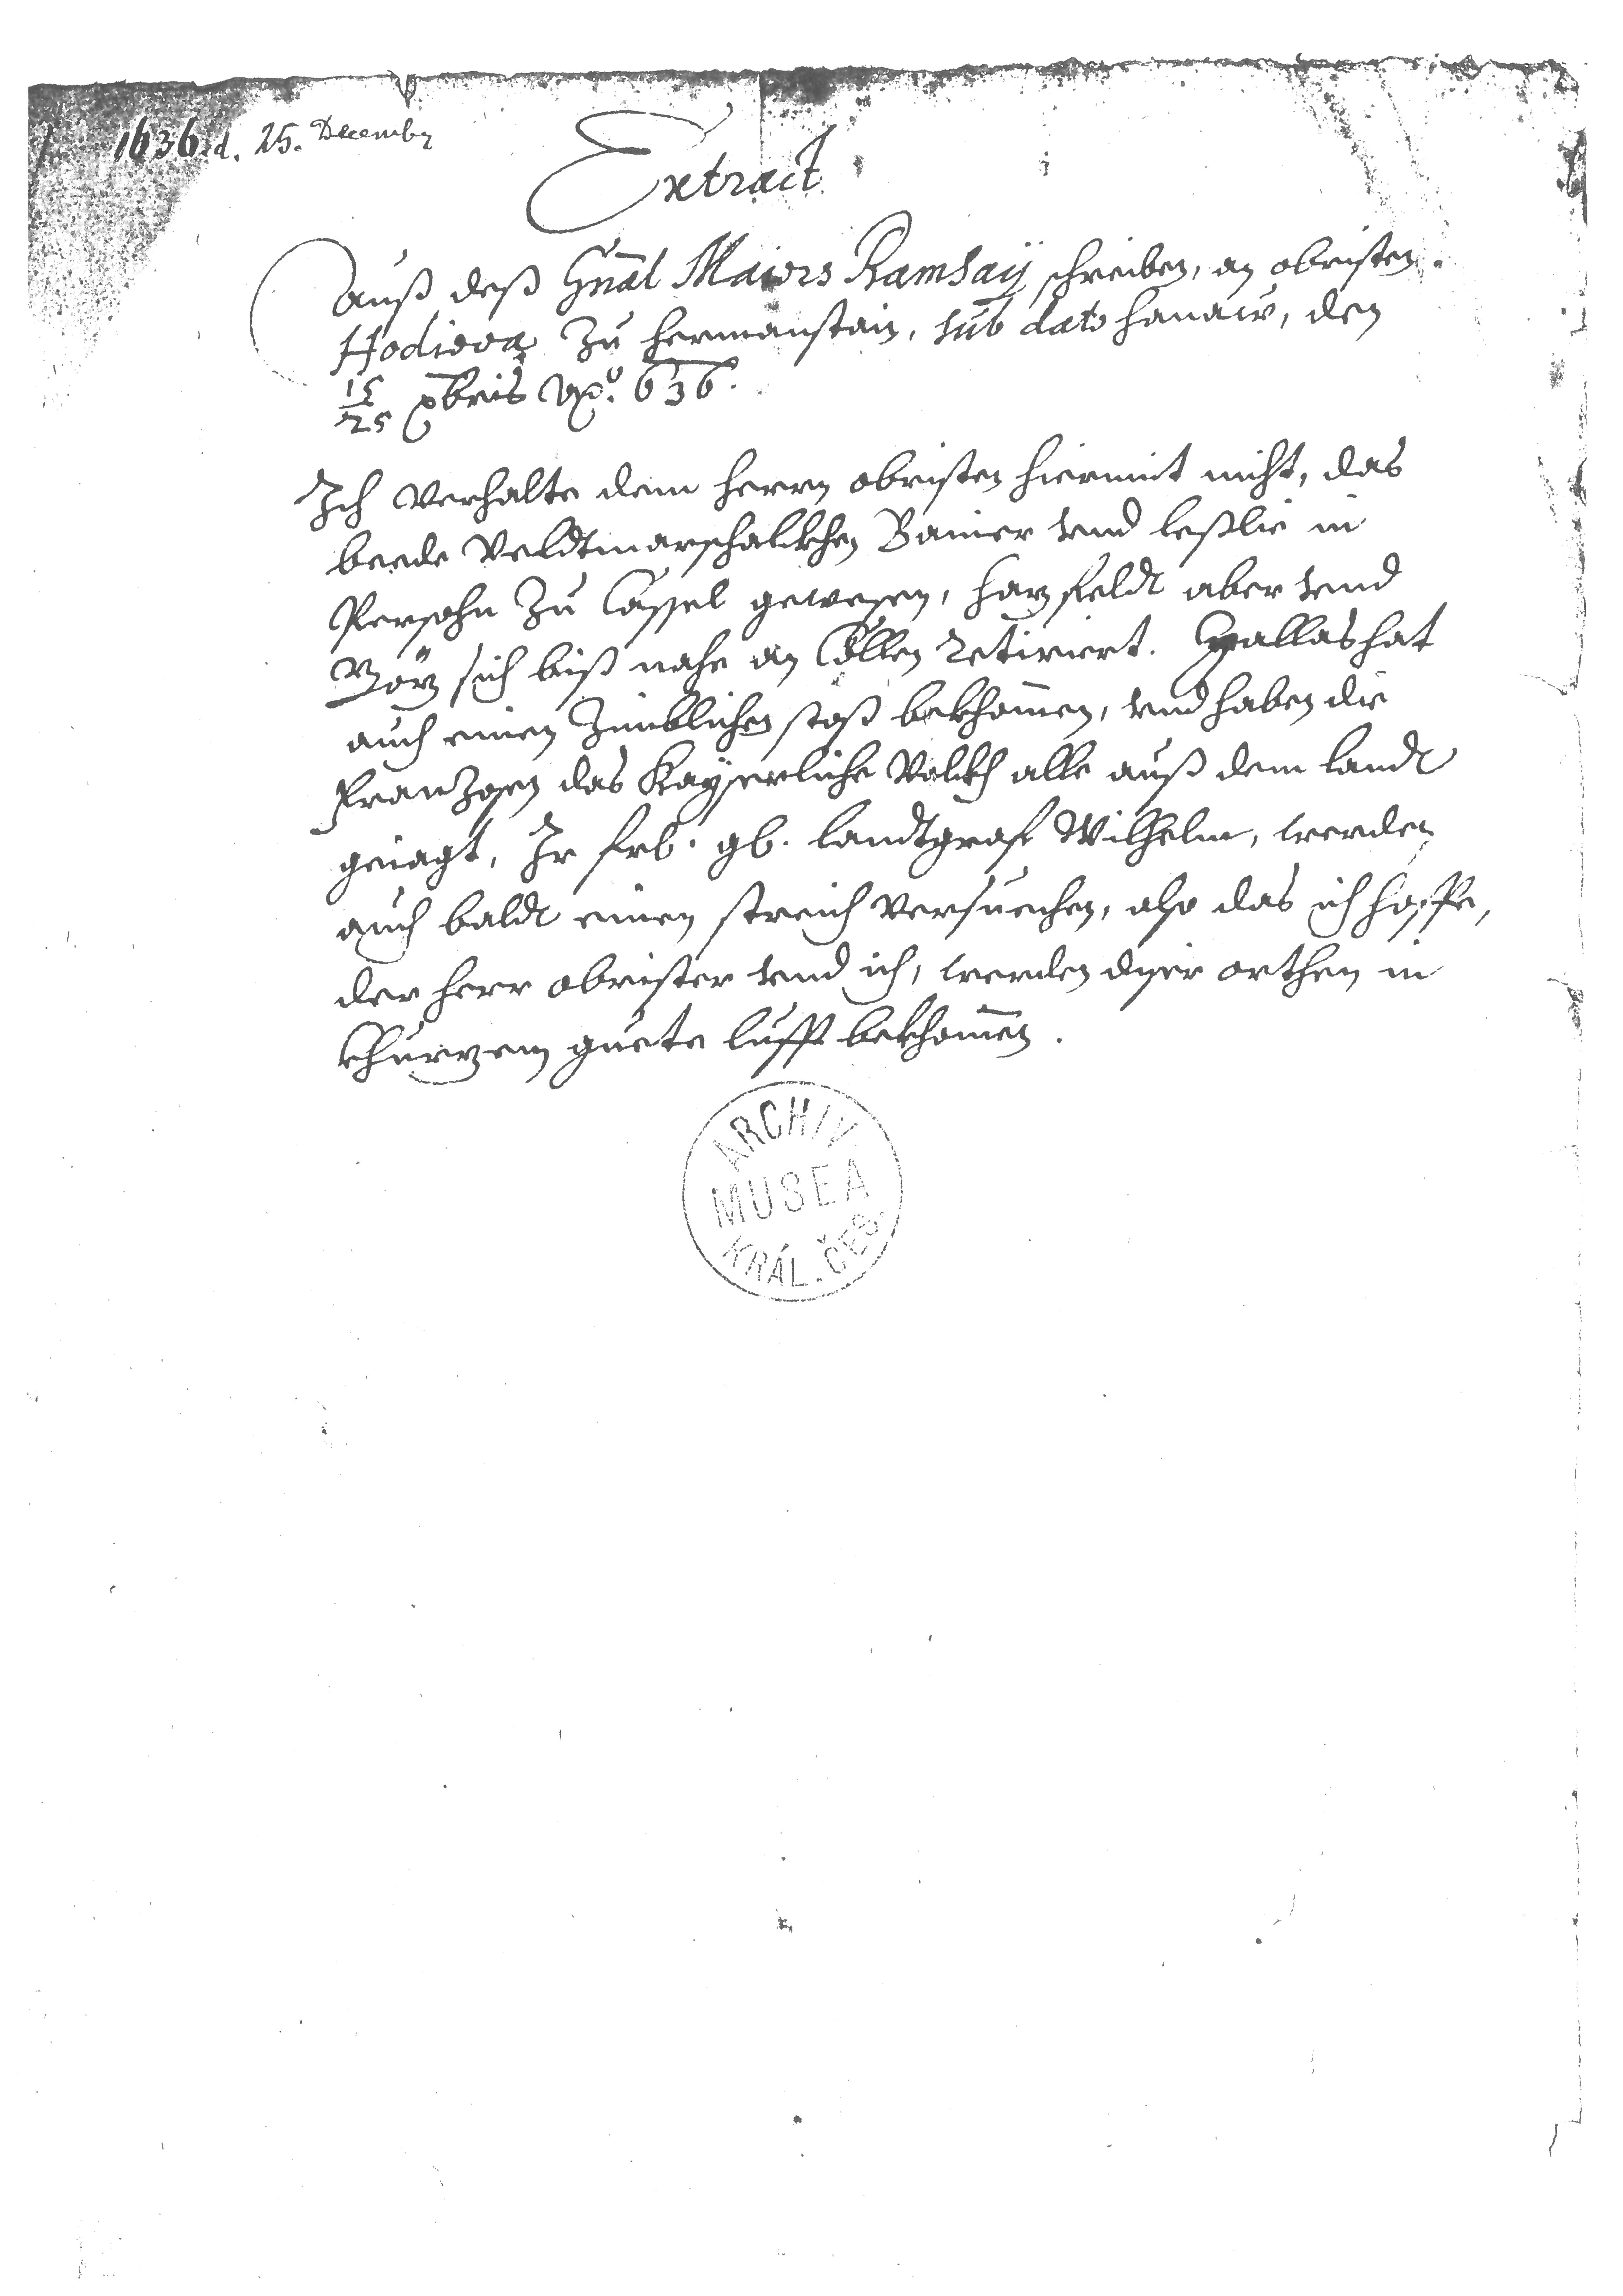 1636. d. 25. Decembr
Extract
Auß deß Gnāl Maiors Ramsaÿ schreiben, an obristen
Hodieva zu Hermanstain, sub dato Hanaw, den
15/25 xbris Ao. 636.
Ich verhalte dem herrn obristen hiermit nicht, das
beede Veldtmarschalckhen Banier vnd Leßlie in
Persohn zu Cassel gewesen, Hazfeldt aber vnd
Göz sich biß nahe an Cöllen retiriert. Gallas hat
auch einen zimblichen stoß bekhommen, vnd haben die
Franzosen das Kayserliche Volckh alle auß dem landt
geiagt, Ir frl. gl. Landtgraf Wilhelm, werden
auch baldt einen streich versuechen, also das ich hoffe,
der herr obrister vnd ich, werden diser orthen in
khurzem guete lufft bekhommen.
ARCHIV
MUSEA
KRÁL. ČES.